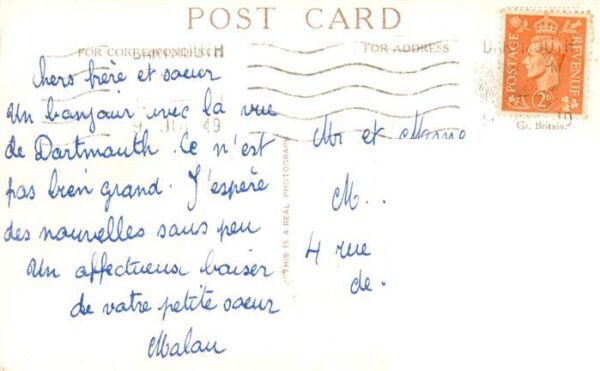 POST CARD
FOR CORRESPONDENCE
FOR ADDRESS
chers frère et soeur
Un bonjour avec la vue
de Dartmouth. Ce n'est
pas bien grand. J'espère
des nouvelles sans peu
Un affectueux baiser
de votre petite soeur
Malou
THIS IS A REAL PHOTOGRAPH
Mr et Mame
M. .
4 rue
de.
POSTAGE
REVENUE
2D
Gt. Britain.
DARTMOUTH
49